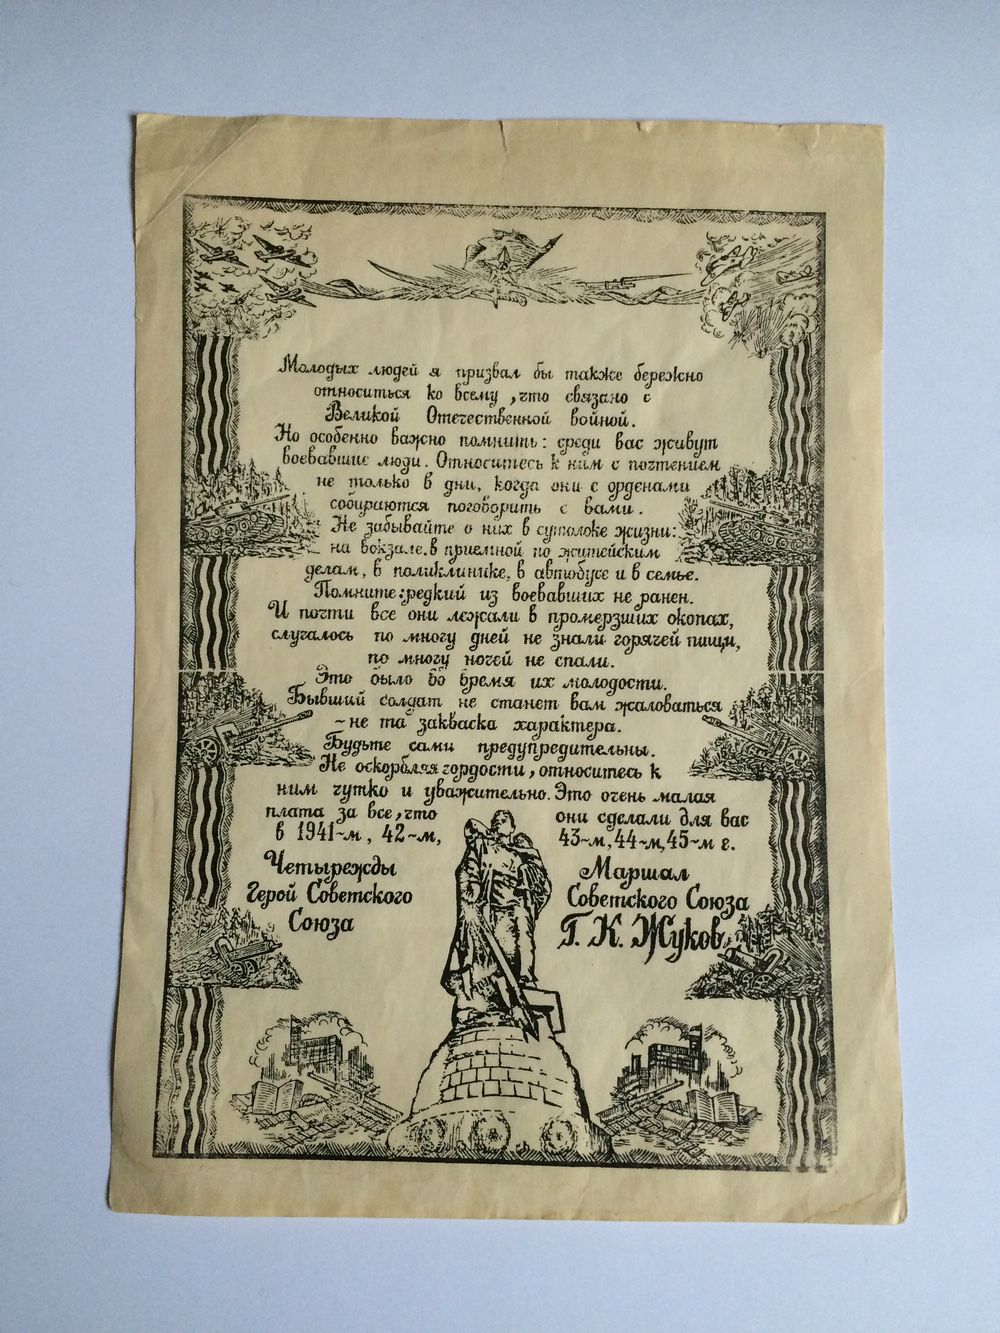 Молодых людей я призвал бы также бережно
относиться ко всему, что связано с
Великой Отечественной войной.
Но особенно важно помнить: среди вас живут
воевавшие люди. Относитесь к ним с почтением
не только в дни, когда они с орденами
собираются поговорить с вами.
Не забывайте о них в сутолоке жизни:
на вокзале, в приемной по житейским
делам, в поликлинике, в автобусе и в семье.
Помните: редкий из воевавших не ранен.
И почти все они лежали в промерзших окопах,
случалось по многу дней не знали горячей пищи,
по многу ночей не спали.
Это было во время их молодости.
Бывший солдат не станет вам жаловаться
~ не та закваска характера.
Будьте сами предупредительны.
Не оскорбляя гордости, относитесь к
ним чутко и уважительно. Это очень малая
плата за все, что они сделали для вас
в 1941~м, 42~м, 43~м, 44~м, 45~м г.
Четырежды
Герой Советского
Союза
Маршал
Советского Союза
Г. К. Жуков